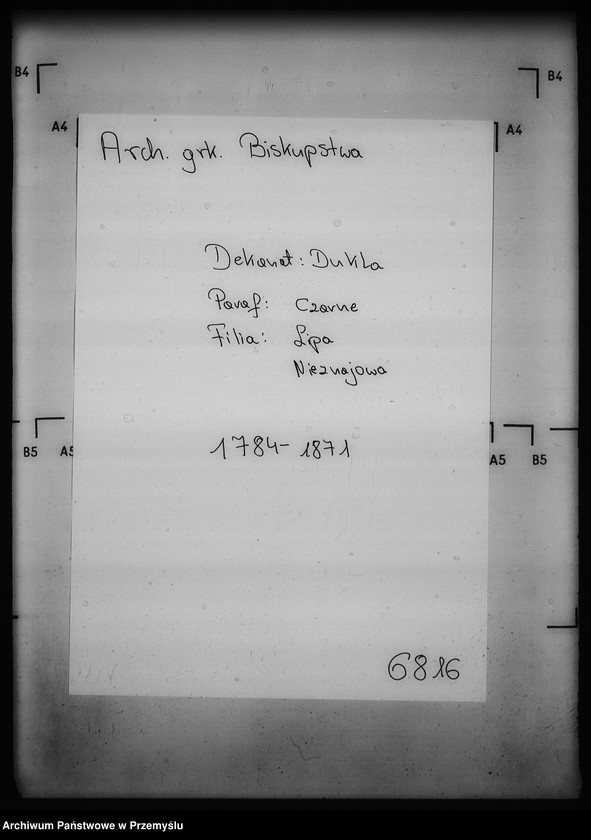 B4
B4
A4
A4
Arch. grk. Biskupstwa
Dekanat: Dukla
Paraf: Czarne
Filia: Lipa
Nieznajowa
1784-1871
B5
A5
A5
B5
6816
Archiwum Państwowe w Przemyślu